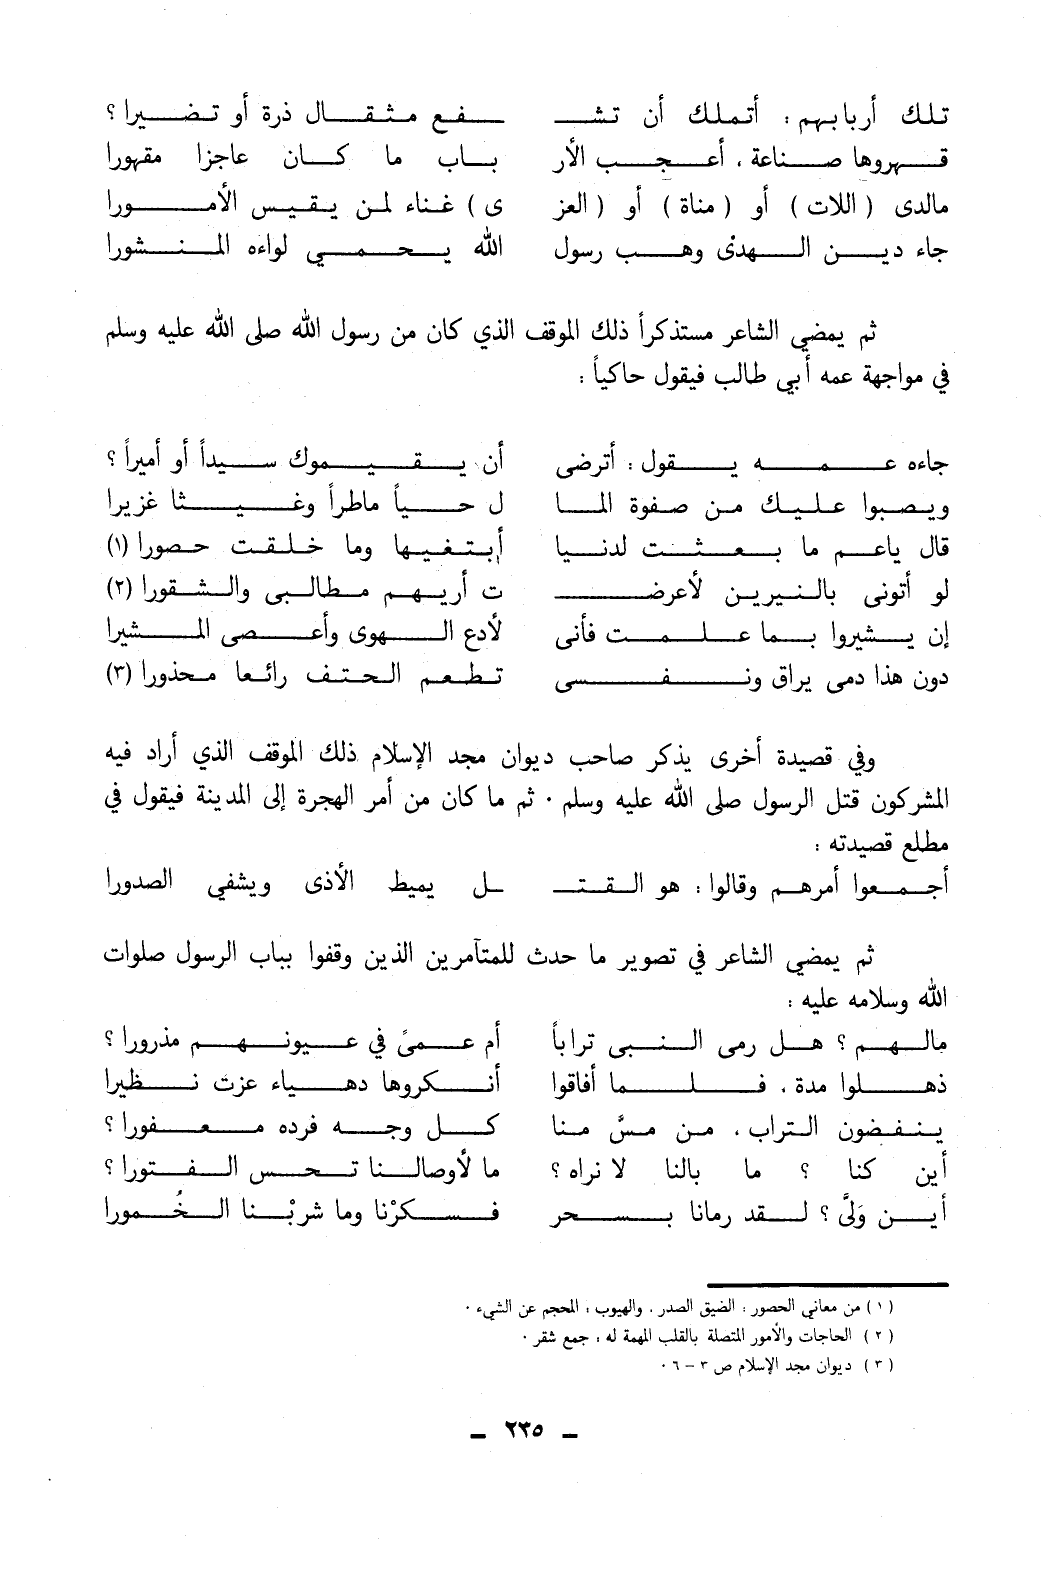 تلك أربابهم : أتملك أن تشـ ـفع مثقال ذرة أو تضيرا ؟
قهروها صناعة ، أعجب الأر باب ما كان عاجزا مقهورا
مالدى ( اللات ) أو ( مناة ) أو ( العز ى ) غناء لمن يقيس الأمورا
جاء دين الهدىٰ وهب رسول الله يحمي لواءه المنشورا
ثم يمضي الشاعر مستذكراً ذلك الموقف الذي كان من رسول الله صلى الله عليه وسلم
في مواجهة عمه أبي طالب فيقول حاكياً :
جاءه عمه يقول : أترضى أن يقيموك سيداً أو أميراً ؟
ويصبوا عليك من صفوة الما ل حياً ماطراً وغيثا غزيرا
قال ياعم ما بعثت لدنيا أبتغيها وما خلقت حصورا (١)
لو أتونى بالنيرين لأعرضـ ت أريهم مطالبى والشقورا (٢)
إن يشيروا بما علمت فأنى لأدع الهوى وأعصى المشيرا
دون هذا دمى يراق ونفسى تطعم الحتف رائعا محذورا (٣)
وفي قصيدة أخرى يذكر صاحب ديوان مجد الإسلام ذلك الموقف الذي أراد فيه
المشركون قتل الرسول صلى الله عليه وسلم . ثم ما كان من أمر الهجرة إلى المدينة فيقول في
مطلع قصيدته :
أجمعوا أمرهم وقالوا : هو القتـ ـل يميط الأذى ويشفي الصدورا
ثم يمضي الشاعر في تصوير ما حدث للمتآمرين الذين وقفوا بباب الرسول صلوات
الله وسلامه عليه :
مالهم ؟ هل رمى النبى تراباً أم عمىً في عيونهم مذرورا ؟
ذهلوا مدة ، فلما أفاقوا أنكروها دهياء عزت نظيرا
ينفضون التراب ، من مسَّ منا كل وجه فرده معفورا ؟
أين كنا ؟ ما بالنا لا نراه ؟ ما لأوصالنا تحس الفتورا ؟
أين وَلَّى ؟ لقد رمانا بسحر فسكرْنا وما شربْنا الخُمورا
(١) من معاني الحصور : الضيق الصدر ، والهيوب : المحجم عن الشيء .
(٢) الحاجات والأمور المتصلة بالقلب المهمة له : جمع شقر .
(٣) ديوان مجد الإسلام ص ٣ – ٦ .
– ٢٣٥ –